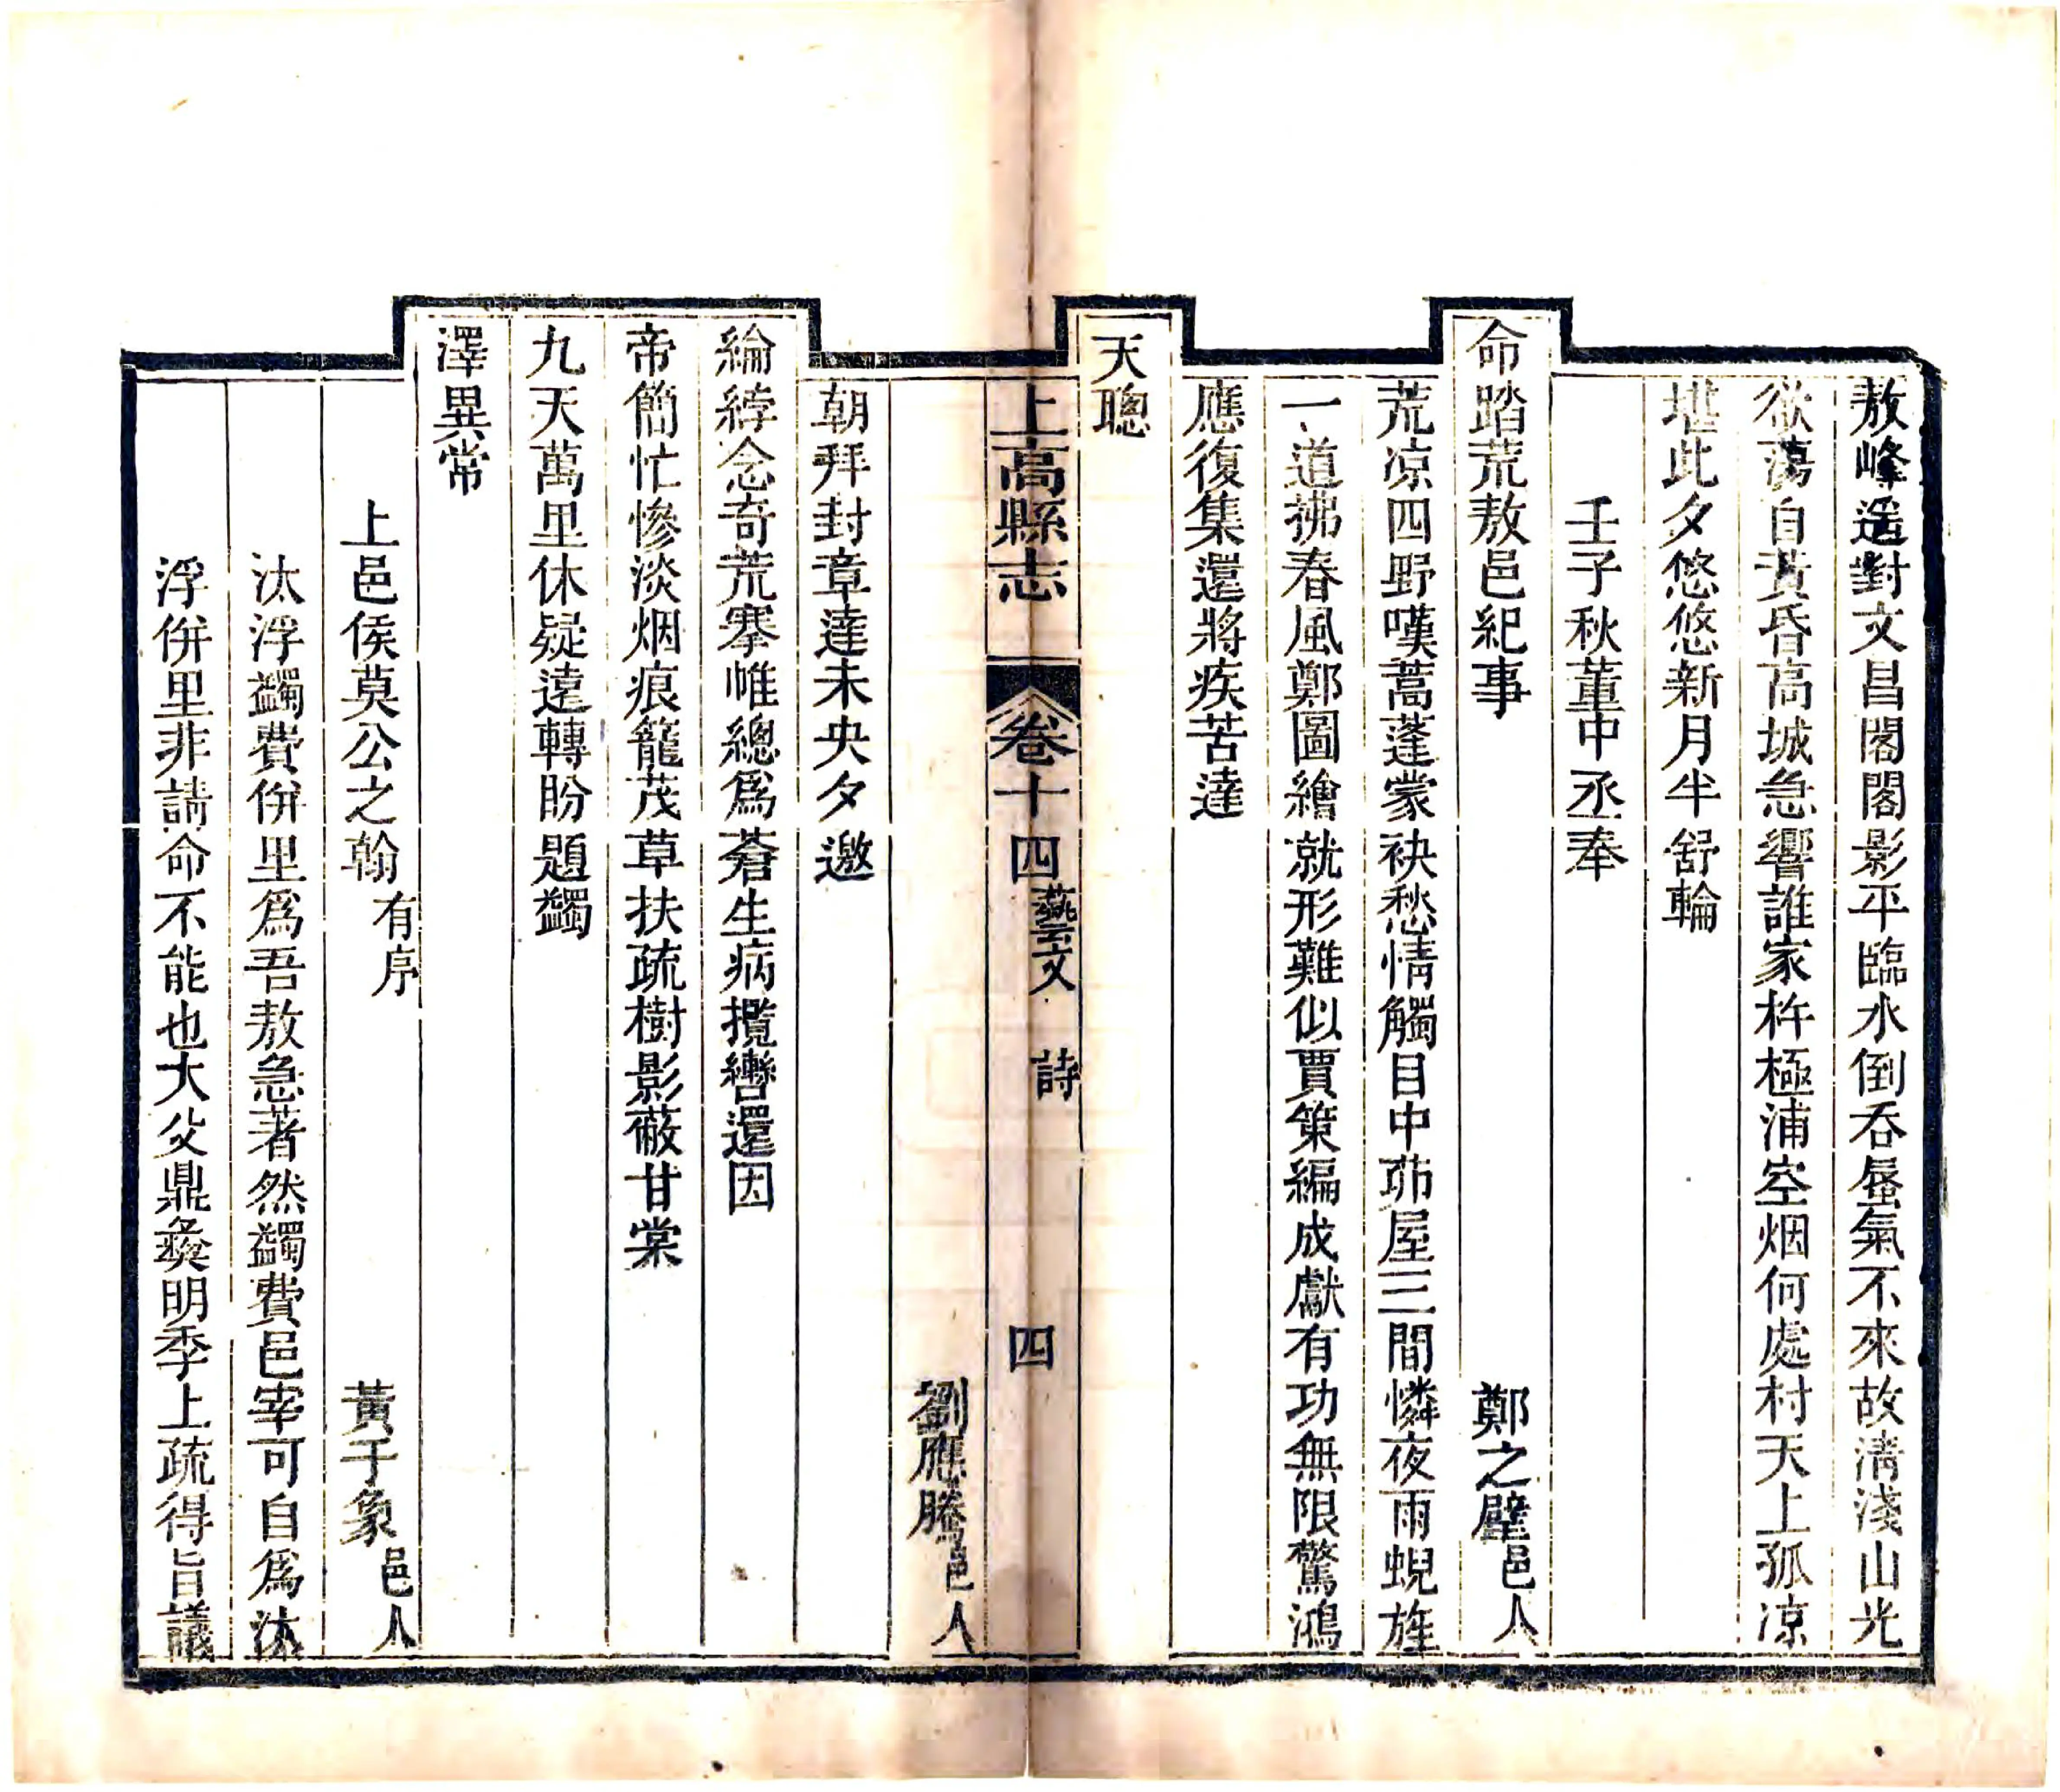 敖峰遥對文昌閣閣影平臨水倒吞蜃氣不來故淸淺山光
欲蕩自黃昏高城急響誰家杵極浦空烟何處村天上孤凉
堪此夕悠悠新月半舒輪
壬子秋董中丞奉
命踏荒敖邑紀事 鄭之璧邑人
荒凉四野嘆蒿蓬蒙袂愁情觸目中茆屋三間憐夜雨蜺旌
一道拂春風鄭圖繪就形難似賈策編成獻有功無限驚鴻
應復集還將疾苦達
天聰
上高縣志 卷十四 藝文 詩 四
劉應騰邑人
朝拜封章達未央夕邀
綸綍念奇荒搴帷總爲蒼生病攬轡還因
帝簡忙慘淡烟痕籠茂草扶疏樹影蔽甘棠
九天萬里休疑遠轉盼題蠲
澤異常
上邑侯莫公之翰有序 黃子象邑人
汰浮蠲費併里爲吾敖急著然蠲費邑宰可自爲汰
浮併里非請命不能也大父鼎彜明季上疏得旨議